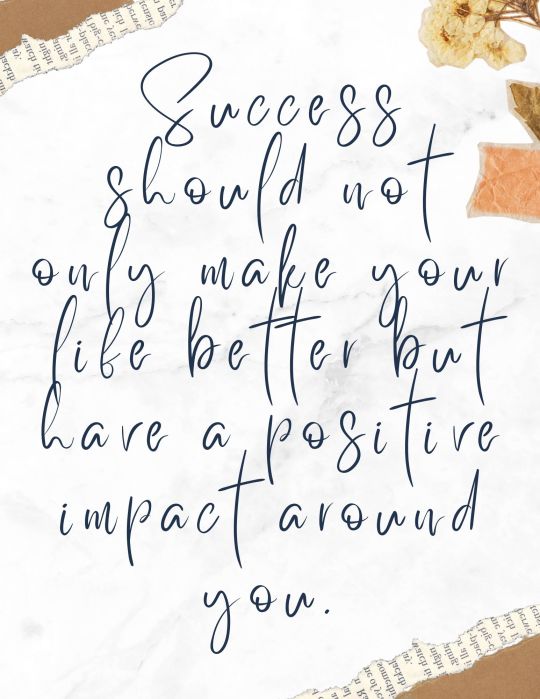 Success
should not
only make your
life better but
have a positive
impact around
you.